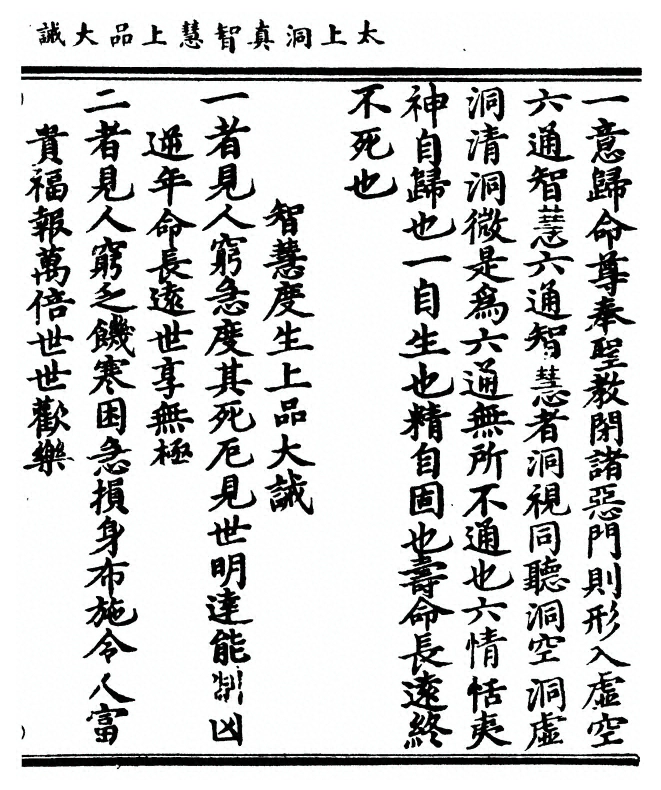 太上洞真智慧上品大誡
一意歸命尊奉聖教閉諸惡門則形入虛空
六通智慧六通智慧者洞視同聽洞空洞虛
洞清洞微是為六通無所不通也六情恬夷
神自歸也一自生也精自固也壽命長遠終
不死也
智慧度生上品大誡
一者見人窮急度其死厄見世明達能制凶
逆年命長遠世享無極
二者見人窮乏饑寒困急損身布施令人富
貴福報萬倍世世歡樂